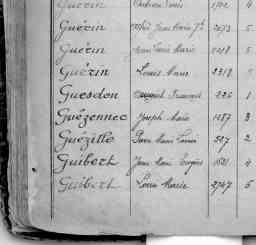 Guérin 1702 4
Guérin Jean Marie 2073 5
Guérin Jean Louis Marie 2218 5
Guérin Louis Marie 2318
Guesdon François 226 1
Guézennec Joseph Marie 1287 3
Guézille Pierre Marie Louis 527 2
Guibert Jean Marie 1621 4
Guibert Louis Marie 2747 5